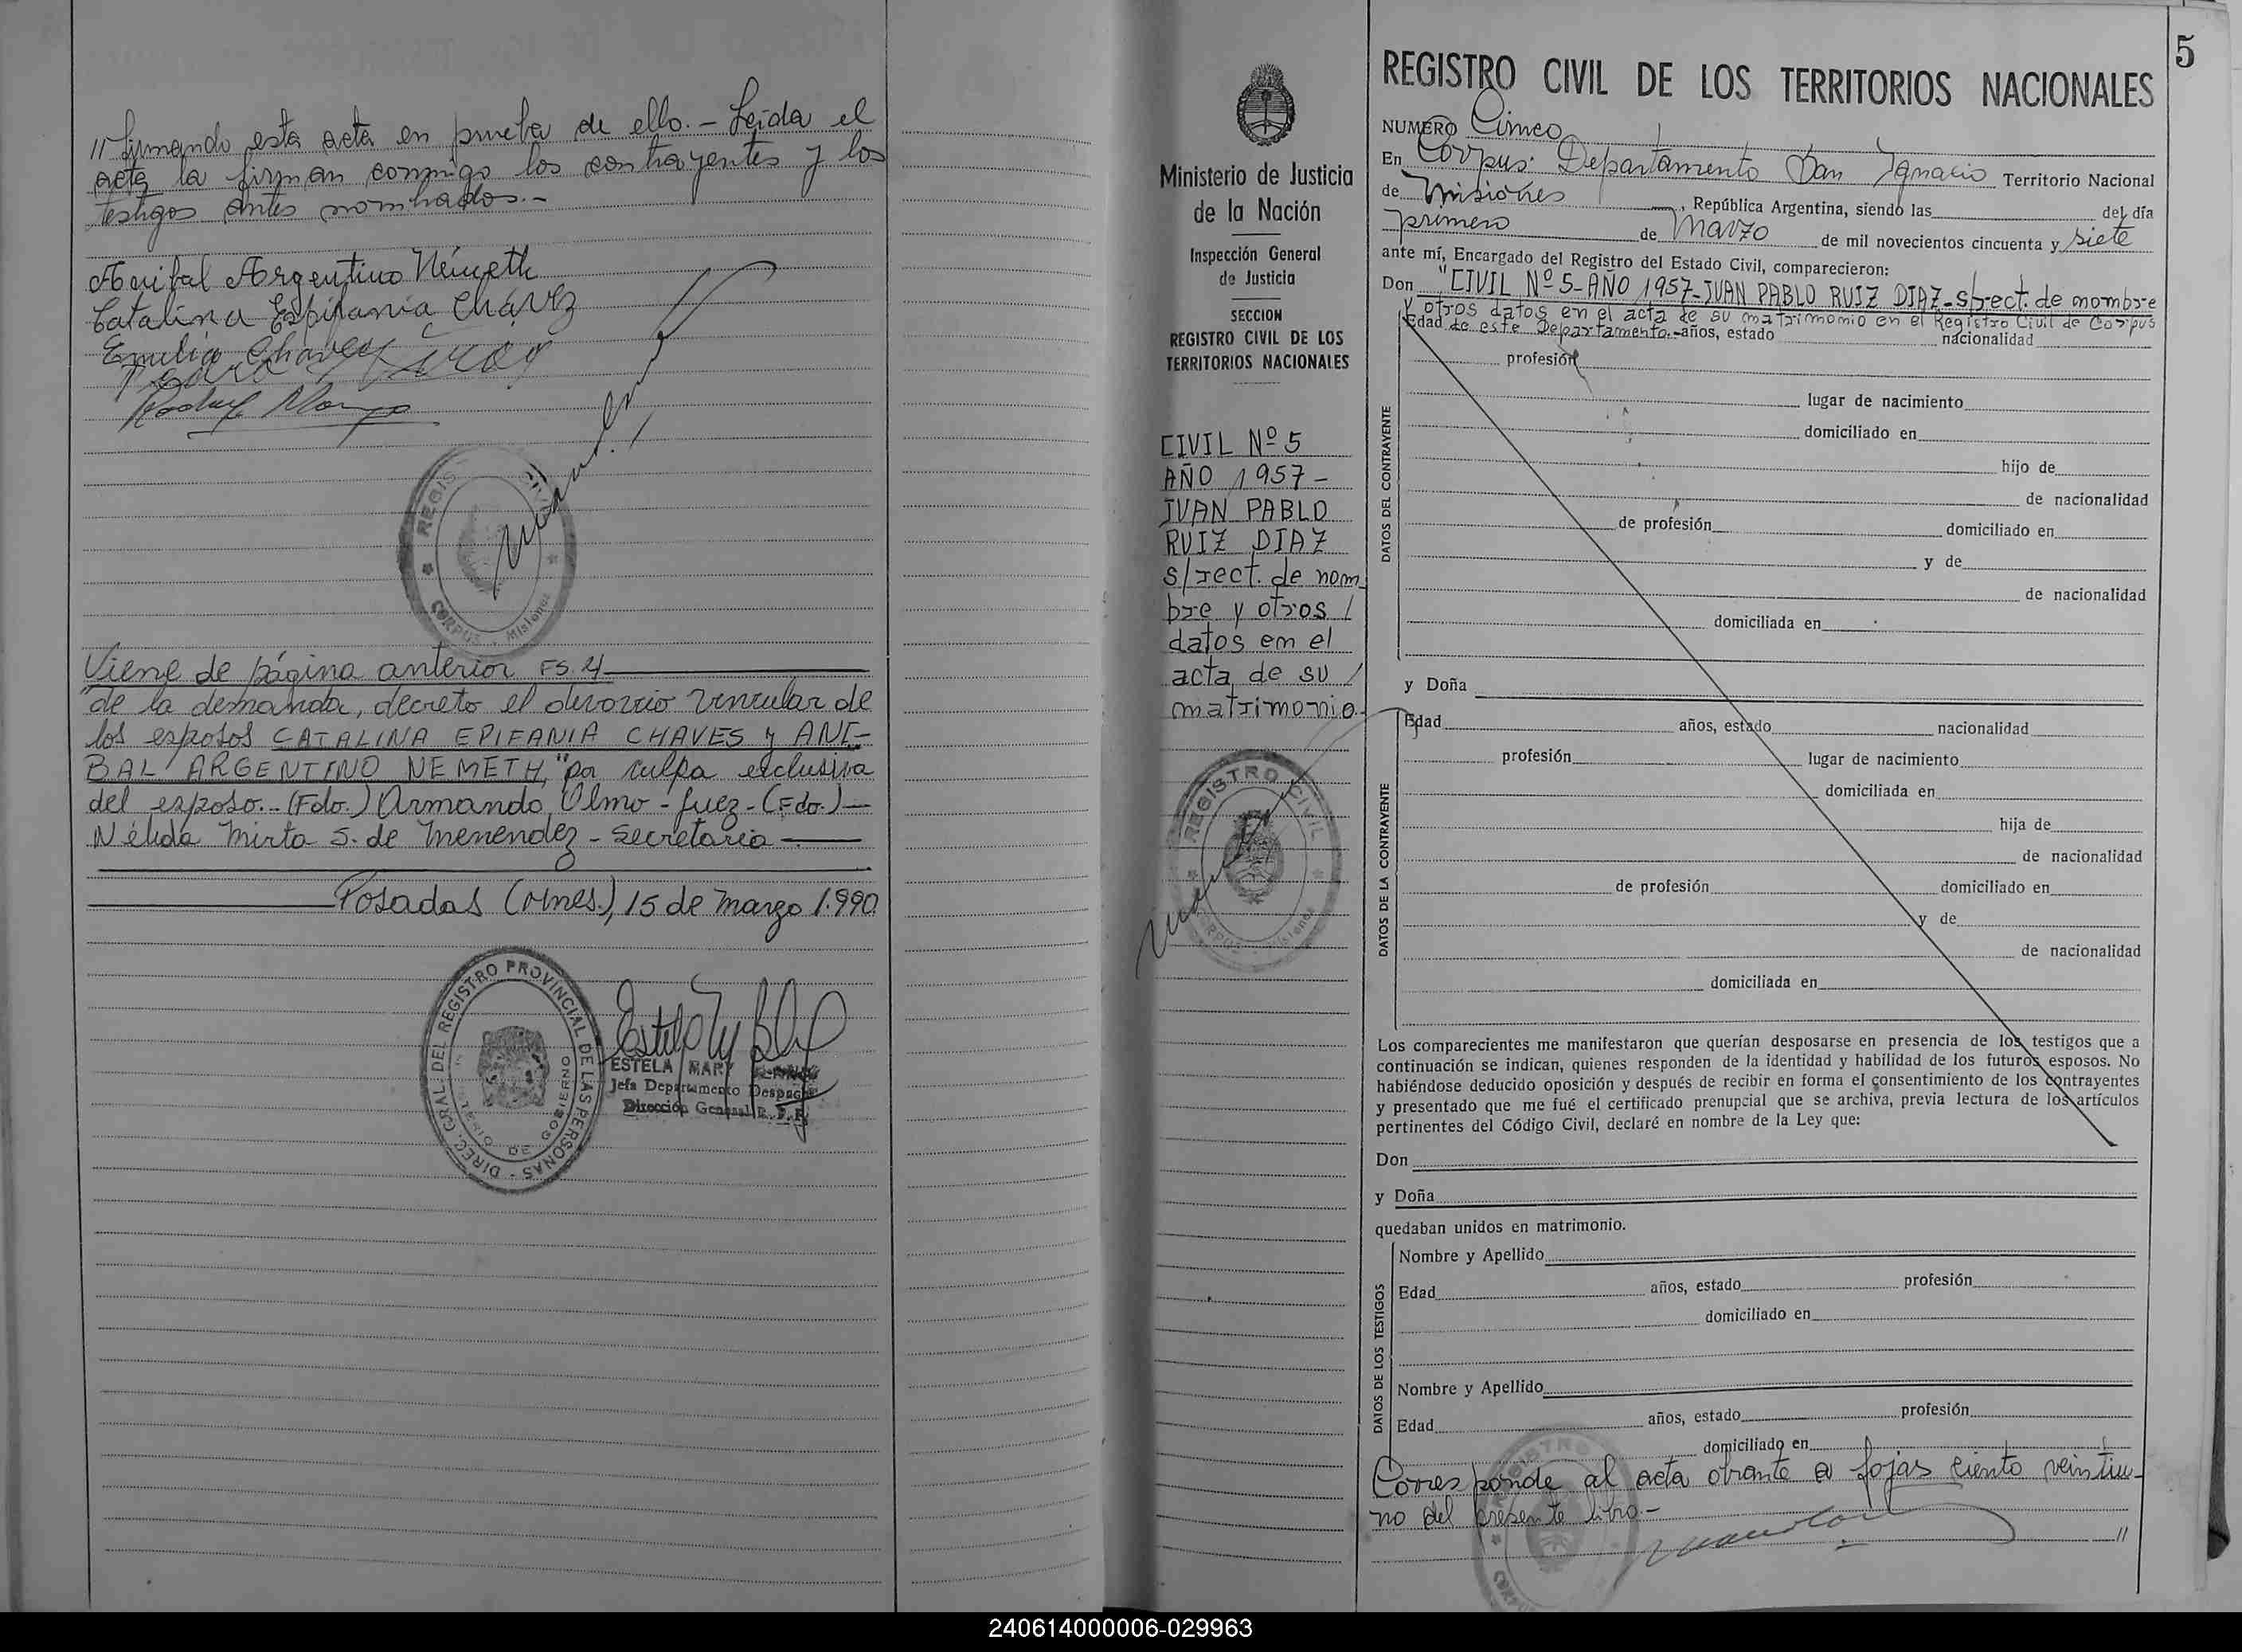 // firmando esta acta en prueba de ello.- Leída el
acta la firman conmigo los contrayentes y los
testigos antes nombrados.-
Anibal Argentino Németh
Catalina Epifania Chávez
Emilia Chavez
REGISTRO CIVIL
CORPUS - Misiones
Viene de página anterior FS. 4
"de la demanda, decreto el divorcio vincular de
los esposos CATALINA EPIFANIA CHAVES y ANI-
BAL ARGENTINO NEMETH," por culpa exclusiva
del esposo.- (Fdo.) Armando Olmo - Juez - (Fdo.) -
Nélida Mirta S. de Menendez - Secretaria -
Posadas (Mnes.), 15 de Marzo 1.990
DIREC. GRAL. DEL REGISTRO PROVINCIAL DE LAS PERSONAS -
DE GOBIERNO
ESTELA MARY
Jefa Departamento Despacho
Dirección General R. P. P.
Ministerio de Justicia
de la Nación
Inspección General
de Justicia
SECCION
REGISTRO CIVIL DE LOS
TERRITORIOS NACIONALES
CIVIL Nº 5
AÑO 1957-
JUAN PABLO
RUIZ DIAZ
s/rect. de nom
bre y otros /
datos en el
acta de su /
matrimonio.-
REGISTRO CIVIL
CORPUS - Misiones
5
REGISTRO CIVIL DE LOS TERRITORIOS NACIONALES
NUMERO Cinco
En Corpus: Departamento San Ignacio Territorio Nacional
de Misiones, República Argentina, siendo las del día
primero de Marzo de mil novecientos cincuenta y siete
ante mí, Encargado del Registro del Estado Civil, comparecieron:
Don "CIVIL Nº 5-AÑO 1957-JUAN PABLO RUIZ DIAZ-s/rect. de nombre
y otros datos en el acta de su matrimonio en el Registro Civil de Corpus
Edad de este Departamento.- años, estado nacionalidad
profesión
lugar de nacimiento
domiciliado en
hijo de
de nacionalidad
de profesión domiciliado en
y de
de nacionalidad
domiciliada en
DATOS DEL CONTRAYENTE
y Doña
Edad años, estado nacionalidad
profesión lugar de nacimiento
domiciliada en
hija de
de nacionalidad
de profesión domiciliado en
y de
de nacionalidad
domiciliada en
DATOS DE LA CONTRAYENTE
Los comparecientes me manifestaron que querían desposarse en presencia de los testigos que a
continuación se indican, quienes responden de la identidad y habilidad de los futuros esposos. No
habiéndose deducido oposición y después de recibir en forma el consentimiento de los contrayentes
y presentado que me fué el certificado prenupcial que se archiva, previa lectura de los artículos
pertinentes del Código Civil, declaré en nombre de la Ley que:
Don
y Doña
quedaban unidos en matrimonio.
Nombre y Apellido
Edad años, estado profesión
domiciliado en
Nombre y Apellido
Edad años, estado profesión
domiciliado en
DATOS DE LOS TESTIGOS
Corresponde al acta obrante a fojas ciento veintiu-
no del presente libro.-
//
240614000006-029963